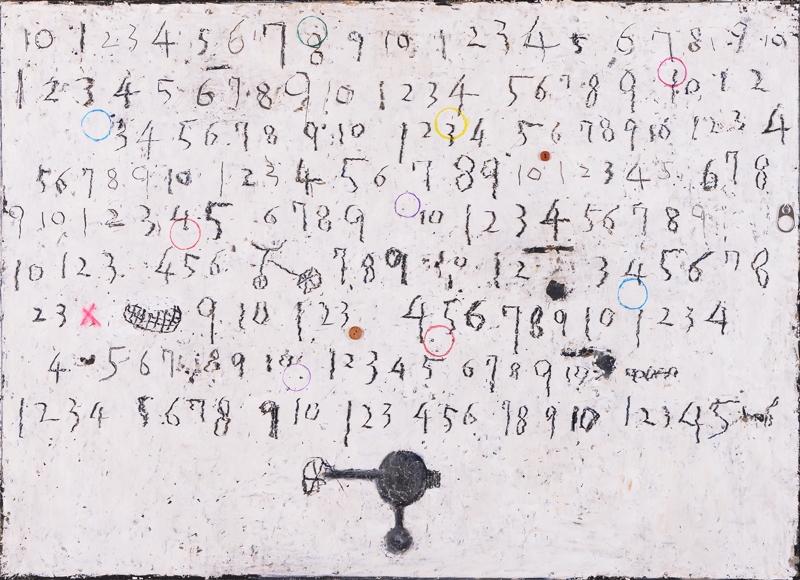 10 1 2 3 4 5 6 7 8 9 10 1 2 3 4 5 6 7 8 9 10
1 2 3 4 5 6 7 8 9 10 1 2 3 4 5 6 7 8 9 10 1 2
3 4 5 6 7 8 9 10 1 2 3 4 5 6 7 8 9 10 1 2 3 4
5 6 7 8 9 10 1 2 3 4 5 6 7 8 9 10 1 2 3 4 5 6 7 8
9 10 1 2 3 4 5 6 7 8 9 10 1 2 3 4 5 6 7 8 9
10 1 2 3 4 5 6 7 8 9 10 1 2 3 4 5 6 7 8
2 3 x 9 10 1 2 3 4 5 6 7 8 9 10 1 2 3 4
4 5 6 7 8 9 10 1 2 3 4 5 6 7 8 9
1 2 3 4 5 6 7 8 9 10 1 2 3 4 5 6 7 8 9 10 1 2 3 4 5